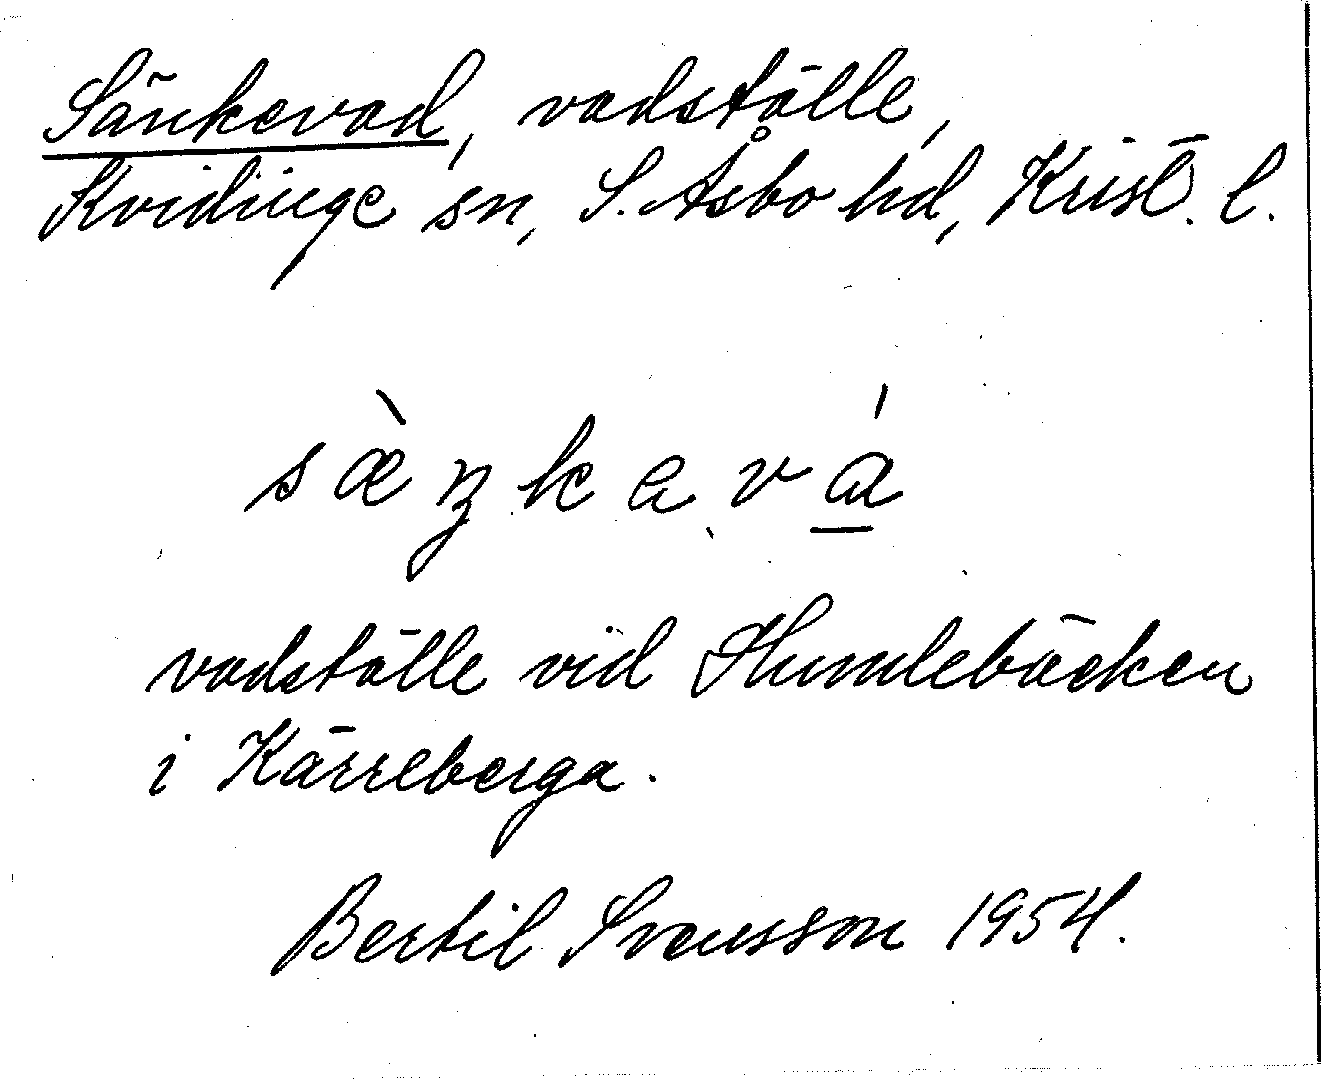 Sänkevad, vadställe,
Kvidinge sn, S. Åsbo hd, Krist. l.
sæ̀ŋkavá̱
vadställe vid Humlebäcken
i Kärreberga.
Bertil Svensson 1954.